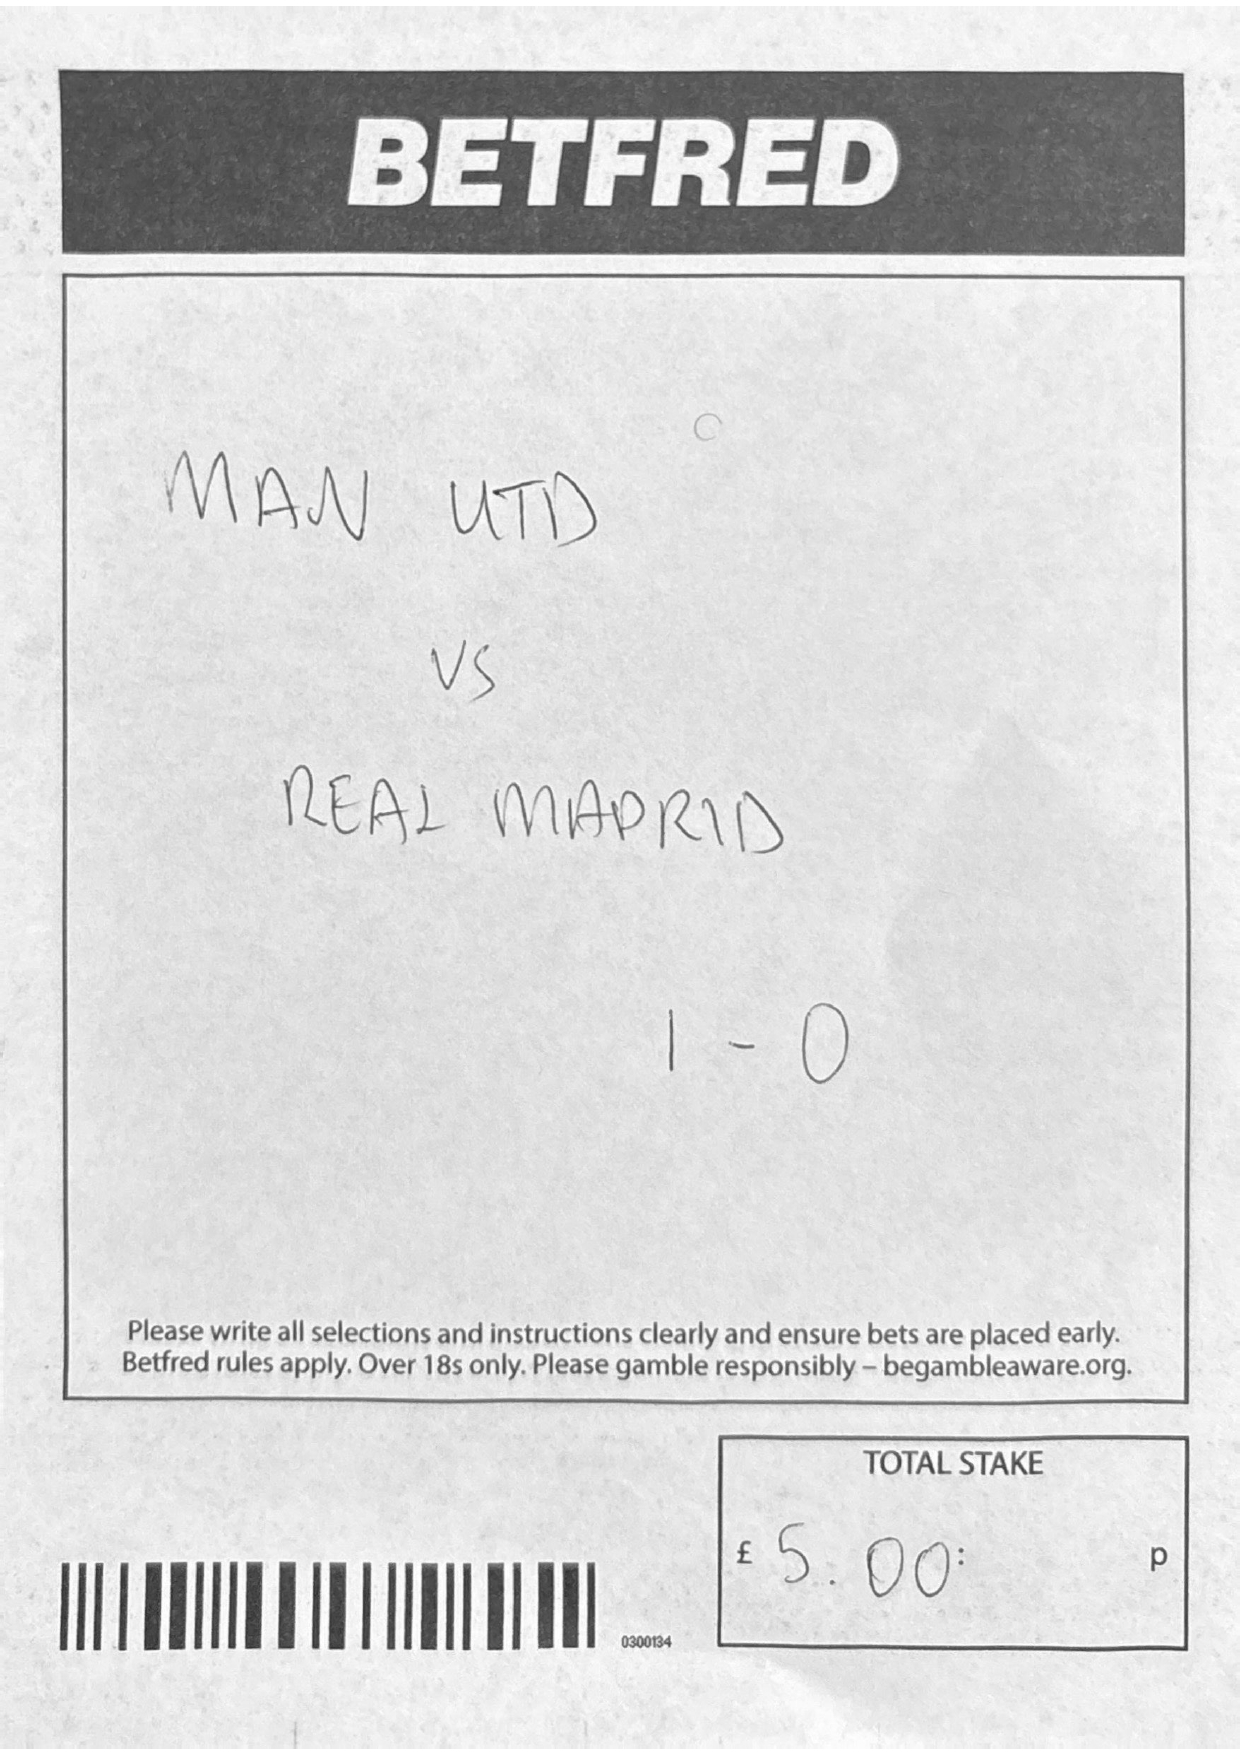 BETFRED
MAN UTD
VS
REAL MADRID
1 - 0
Please write all selections and instructions clearly and ensure bets are placed early.
Betfred rules apply. Over 18s only. Please gamble responsibly – begambleaware.org.
TOTAL STAKE
£ 5.00 : p
0300134